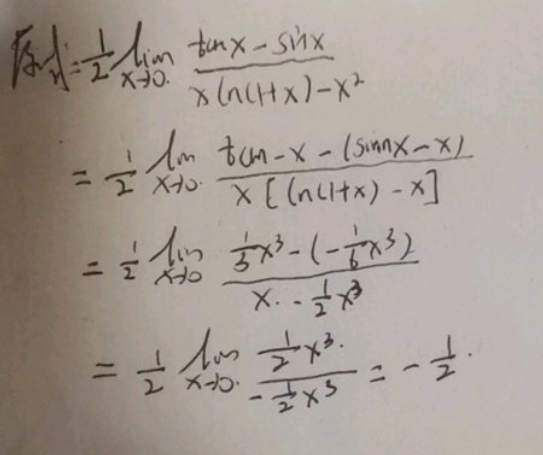 原式=\frac{1}{2}\lim_{x→0}\frac{tanx-sinx}{xln(1+x)-x^2}
=\frac{1}{2}\lim_{x→0}\frac{tan-x-(sinnx-x)}{x[ln(1+x)-x]}
=\frac{1}{2}\lim_{x→0}\frac{\frac{1}{3}x^3-(-\frac{1}{6}x^3)}{x·-\frac{1}{2}x^3}
=\frac{1}{2}\lim_{x→0}\frac{\frac{1}{2}x^3}{-\frac{1}{2}x^3}=-\frac{1}{2}.